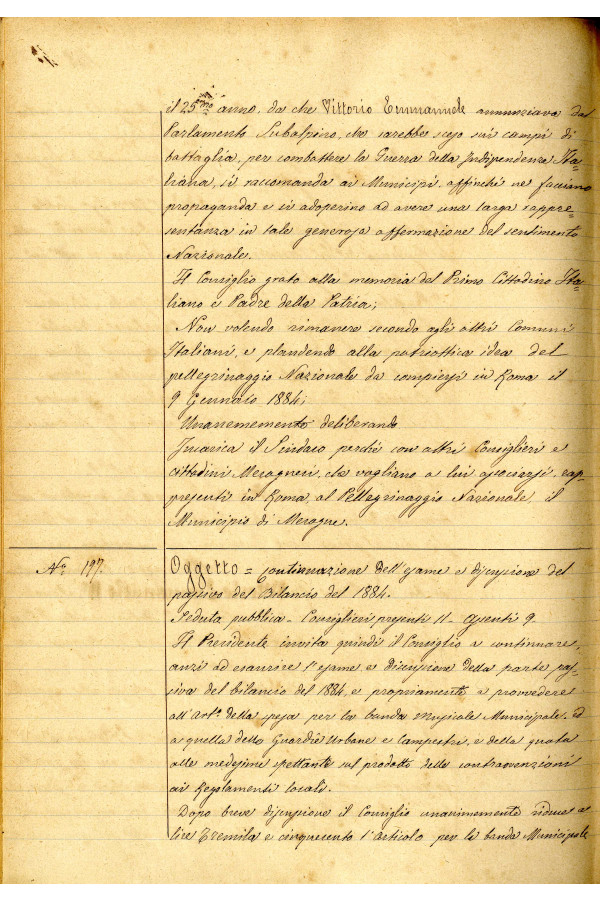 il 25mo anno, da che Vittorio Emmanuele annunziava dal
Parlamento Subalpino, che sarebbe sceso sui campi di
battaglia, per combattere la Guerra della Indipendenza Ita=
liana, si raccomanda ai Municipi, affinchè ne facciano
propaganda e si adoperino ad avere una larga rappre=
sentanza in tale generosa affermazione del sentimento
Nazionale.
Il Consiglio grato alla memoria del Primo Cittadino Ita=
liano e Padre della Patria;
Non volendo rimanere secondo agli altri Comuni
Italiani, e plaudendo alla patriottica idea del
pellegrinaggio Nazionale da compiersi in Roma il
9 Gennaio 1884;
Unanemento deliberando
Incarica il Sindaco perchè con altri Consiglieri e
cittadini che vogliano a lui associarsi, rap=
presenti in Roma, al Pellegrinaggio Nazionale, il
Municipio di
No. 197. Oggetto = Continuazione dell'esame e discussione del
passivo del Bilancio del 1884.
Seduta pubblica - Consiglieri presenti 11 - assenti 9.
Il Presidente invita quindi il Consiglio a continuare,
anzi ad esaurire l'esame e discussione della parte pas=
siva del bilancio del 1884, e propriamente a provvedere
all'Arto. della spesa per la banda Musicale Municipale, ed
a quella delle Guardie Urbane e Campestri, e della quota
alle medesime spettante sul prodotto delle contravenzioni
ai Regolamenti locali.
Dopo breve discussione il Consiglio unanimemente riduce a
lire Tremila e cinquecento l'articolo per la banda Municipale